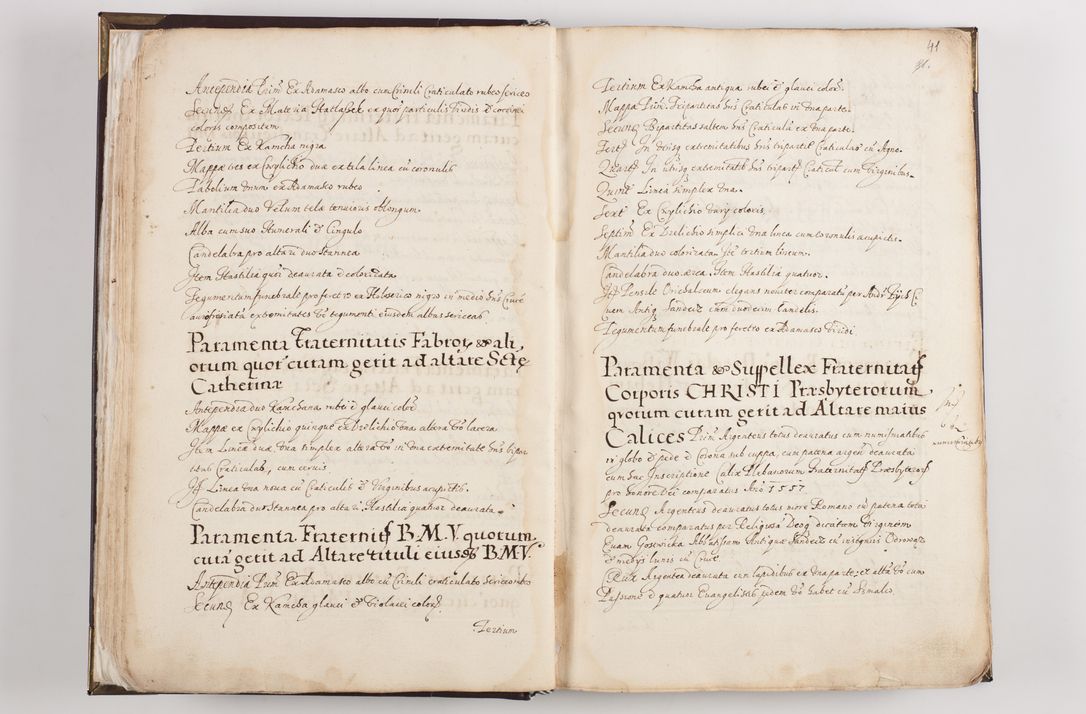 Antependia Prim Ex Adamasco albo cum Crinuli Craticulato rubeo sericeo
Secund Ex Materia Hatlasek ex quor particulis viridis & coccinei
coloris compositem
Tertium Ex Kamcha nigra
Mappæ tres ex Cwylicho duæ ex tela linea cu coronulis
Tabolium unum ex Adamasco rubeo
Mantilia duo Velum telæ tenuioris oblongum
Alba cum suo Humerali & Cingulo
Candelabra pro altari duo stannea
Item Hastilia quor deaurata & colorizata
Tegumentum funebrale pro feretro ex Holoserico nigro in medio hns Cruce
aurofrisiata extremitates vo tegumenti eiusdem albus sericeas
Paramenta Fraternitatis Fabror & ali
orum quor curam gerit ad altare Sctę
Catherinæ
Antependia duo Kamchana rubei & glauci color
Mappæ ex Cwylicho quinque ex Drelichio una altera vo lacera
Item Lineæ duæ, una simplex altera vo in una extremitate hns bipar
titas Craticulas, cum cervis
Itt Linea una noua cu Craticulis & Virginibus acupictis.
Candelabra duo Stannea pro altari, Hastilia quatuor deaurata
Paramenta Fraternit B. M. V. quorum
curā gerit ad Altare tituli eiusd B M V.
Antependia Prim Ex Adamasco albo cu Crinuli craticulato Sericeo rubeo
Secund Ex Kamcha glauci & Violacei color.
Tertium
41
Tertium Ex Kamcha antiqua rubei & glauci color
Mappa Prim Tripartitas hns Craticulas in una parte.
Secund Bipartitas saltem hns Craticulā ex una parte.
Tert In utrisq extremitatibus hns tripartit Craticulas cu Agno.
Quart In utrisq extremitatib hns tripart Craticul cum Virginibus.
Quint Linea simplex una.
Sext Ex Cwylichio varij coloris
Septim Ex Drelichio simplici una linea cum coronulis acupictis.
Mantilia duo colorizata. Ite tertium lineum.
Candelabra duo ærea. Item Hastilia quatuor.
Itt Pensile Orichalceum elegans nouiter comparatu per Andr Ci
uem Antiq Sandecz cum duodecim Candelis.
Tegumentum funebrale pro feretro ex Adamasco viridi
Paramenta & Suppellex Fraternitat
Corporis CHRISTI Præsbyterorum
quorum curam gerit ad Altare maius
Calices Prim Argenteus totus deauratus cum numismatibus
in globo & pede & Corona sub cuppa, cum patena argen deaurata
cum huc Inscriptione Calix Plebanorum Fraternitat Præsbyteror
pro honore Dei comparatus Ano 1557
Secund Argenteus deauratus totus more Romano cu patena tota
deaurata comparatus per Religiosā Deoq dicatam Virginem
Euam Goswicka Abbatissam Antiquæ Sandecz cu insignijs Odrowąz
& medijs lunis cu Cruce
Crux Argentea deaurata cum lapidibus ex una parte; et alta vo cum
Passione & quatuor Euangelistis pedem vo habet cu Simalio.